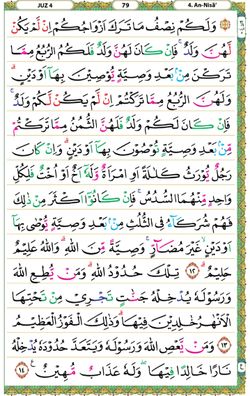 JUZ 4 79 4. An-Nisā'
وَلَكُمْ نِصْفُ مَا تَرَكَ اَزْوَاجُكُمْ اِنْ لَّمْ يَكُنْ
لَّهُنَّ وَلَدٌ ۚ فَاِنْ كَانَ لَهُنَّ وَلَدٌ فَلَكُمُ الرُّبُعُ مِمَّا
تَرَكْنَ مِنْۢ بَعْدِ وَصِيَّةٍ يُّوْصِيْنَ بِهَآ اَوْ دَيْنٍ ۗ
وَلَهُنَّ الرُّبُعُ مِمَّا تَرَكْتُمْ اِنْ لَّمْ يَكُنْ لَّكُمْ وَلَدٌ ۚ
فَاِنْ كَانَ لَكُمْ وَلَدٌ فَلَهُنَّ الثُّمُنُ مِمَّا تَرَكْتُمْ
مِّنْۢ بَعْدِ وَصِيَّةٍ تُوْصُوْنَ بِهَآ اَوْ دَيْنٍ ۗ وَاِنْ كَانَ
رَجُلٌ يُّوْرَثُ كَلٰلَةً اَوِ امْرَاَةٌ وَّلَهٗٓ اَخٌ اَوْ اُخْتٌ فَلِكُلِّ
وَاحِدٍ مِّنْهُمَا السُّدُسُ ۚ فَاِنْ كَانُوْٓا اَكْثَرَ مِنْ ذٰلِكَ
فَهُمْ شُرَكَآءُ فِى الثُّلُثِ مِنْۢ بَعْدِ وَصِيَّةٍ يُّوْصٰى بِهَآ
اَوْ دَيْنٍ ۙ غَيْرَ مُضَآرٍّ ۚ وَصِيَّةً مِّنَ اللّٰهِ ۗ وَاللّٰهُ عَلِيْمٌ
حَلِيْمٌ ۗ ١٢ تِلْكَ حُدُوْدُ اللّٰهِ ۗ وَمَنْ يُّطِعِ اللّٰهَ
وَرَسُوْلَهٗ يُدْخِلْهُ جَنّٰتٍ تَجْرِيْ مِنْ تَحْتِهَا
الْاَنْهٰرُ خٰلِدِيْنَ فِيْهَا ۗ وَذٰلِكَ الْفَوْزُ الْعَظِيْمُ
١٣ وَمَنْ يَّعْصِ اللّٰهَ وَرَسُوْلَهٗ وَيَتَعَدَّ حُدُوْدَهٗ يُدْخِلْهُ
نَارًا خَالِدًا فِيْهَا ۖ وَلَهٗ عَذَابٌ مُّهِيْنٌ ١٤